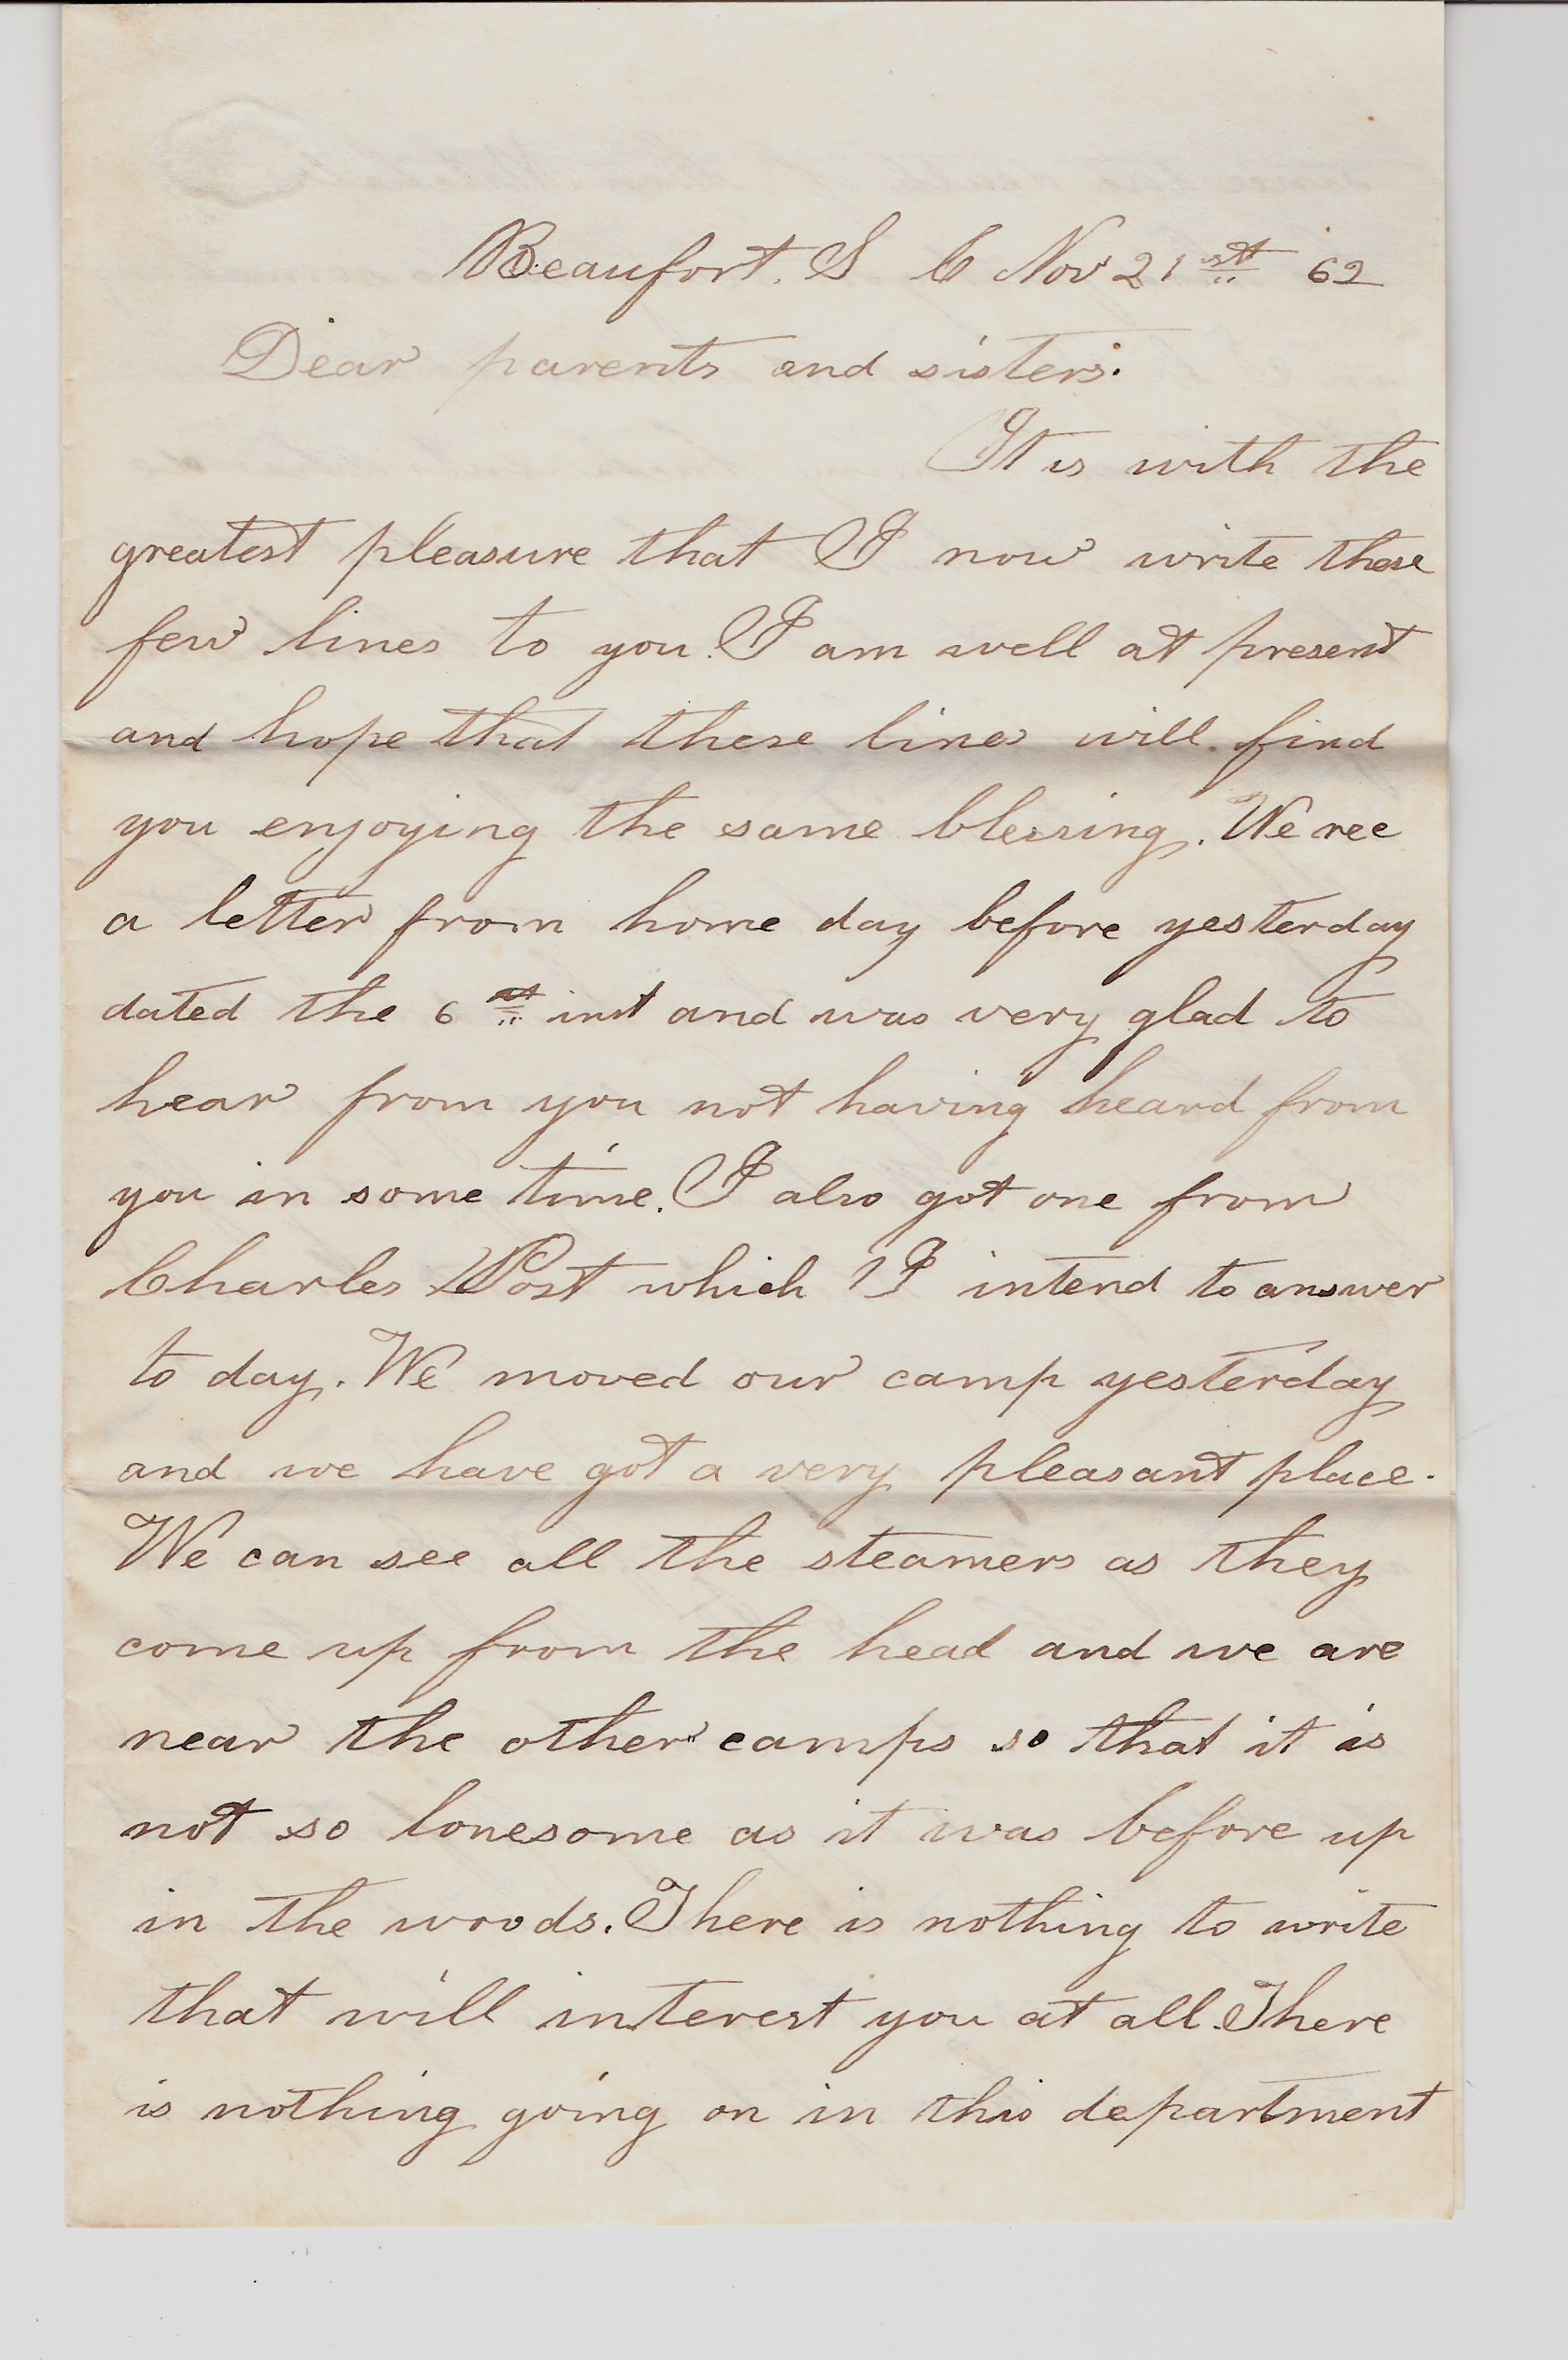 Beaufort. S C Nov 21st 62
Dear parents and sisters.
It is with the
greatest pleasure that I now write these
few lines to you. I am well at present
and hope that these lines will find
you enjoying the same blessing. We rec
a letter from home day before yesterday
dated the 6th inst and was very glad to
hear from you not having heard from
you in some time. I also got one from
Charles Post which I intend to answer
to day. We moved our camp yesterday
and we have got a very pleasant place.
We can see all the steamers as they
come up from the head and we are
near the other camps so that it is
not so lonesome as it was before up
in the woods. There is nothing to write
that will interest you at all. There
is nothing going on in this department